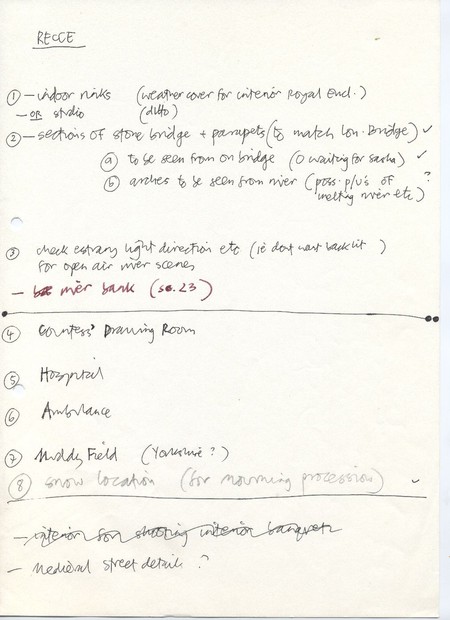 RECCE
① – indoor rinks (weather cover for interior Royal Encl.)
– OR studio (ditto)
② – sections of stone bridge + parapets (to match Lon. Bridge) ✓
ⓐ to be seen from on bridge (O waiting for Sasha) ✓
ⓑ arches to be seen from river (poss. p/u's of ?
melting river etc)
③ check estuary light direction etc (ie dont want back lit )
for open air river scenes
– river bank (sc. 23)
④ Countess' Drawing Room
⑤ Hospital
⑥ Ambulance
⑦ Muddy Field (Yorkshire ?)
⑧ snow location (for mourning procession) ✓
– interior for shooting interior banquet
– Medieval street details ?